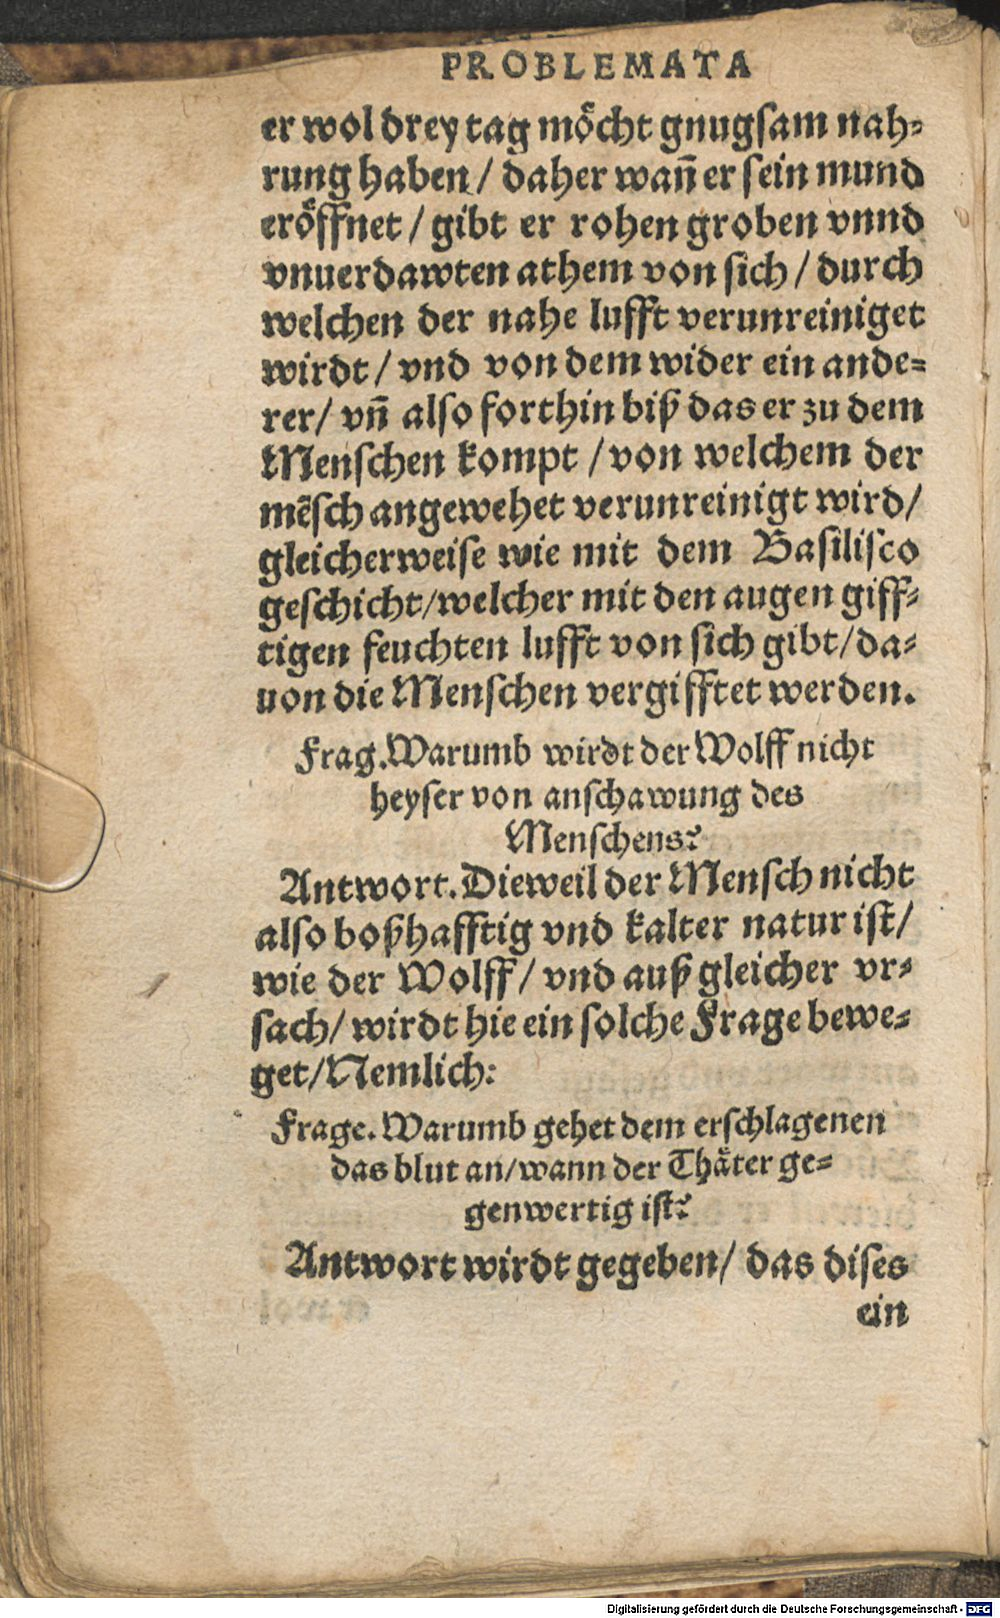 PROBLEMATA
er wol drey tag moͤcht gnugsam nah⸗
rung haben / daher wañ er sein mund
eroͤffnet / gibt er rohen groben vnnd
vnuerdawten athem von sich / durch
welchen der nahe lufft verunreiniget
wirdt / vnd von dem wider ein ande⸗
rer / vñ also forthin biß das er zu dem
Menschen kompt / von welchem der
mẽsch angewehet verunreinigt wird /
gleicherweise wie mit dem Basilisco
geschicht / welcher mit den augen giff⸗
tigen feuchten lufft von sich gibt / da⸗
uon die Menschen vergifftet werden.
Frag. Warumb wirdt der Wolff nicht
heyser von anschawung des
Menschens?
Antwort. Dieweil der Mensch nicht
also boßhafftig vnd kalter natur ist /
wie der Wolff / vnd auß gleicher vr⸗
sach / wirdt hie ein solche Frage bewe⸗
get / Nemlich:
Frage. Warumb gehet dem erschlagenen
das blut an / wann der Thaͤter ge⸗
genwertig ist?
Antwort wirdt gegeben / das dises
ein
Digitalisierung gefördert durch die Deutsche Forschungsgemeinschaft - DFG